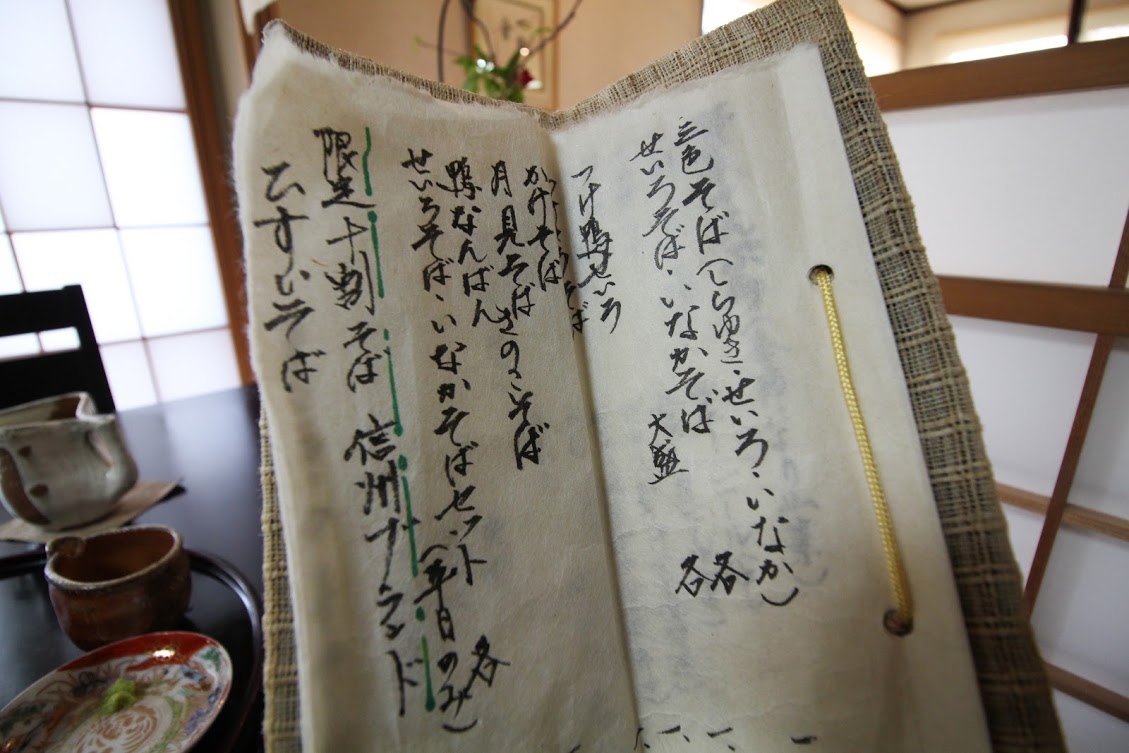 三色そば(しらゆき・せいろ・いなか)
せいろそば・いなかそば 各
大盛 各
つけ鴨せいろ
かけそば
月見そば きのこそば
鴨なんばん
せいろそば・いなかそばセット 各
(平日のみ)
限定十割そば 信州ブランド
ひすいそば